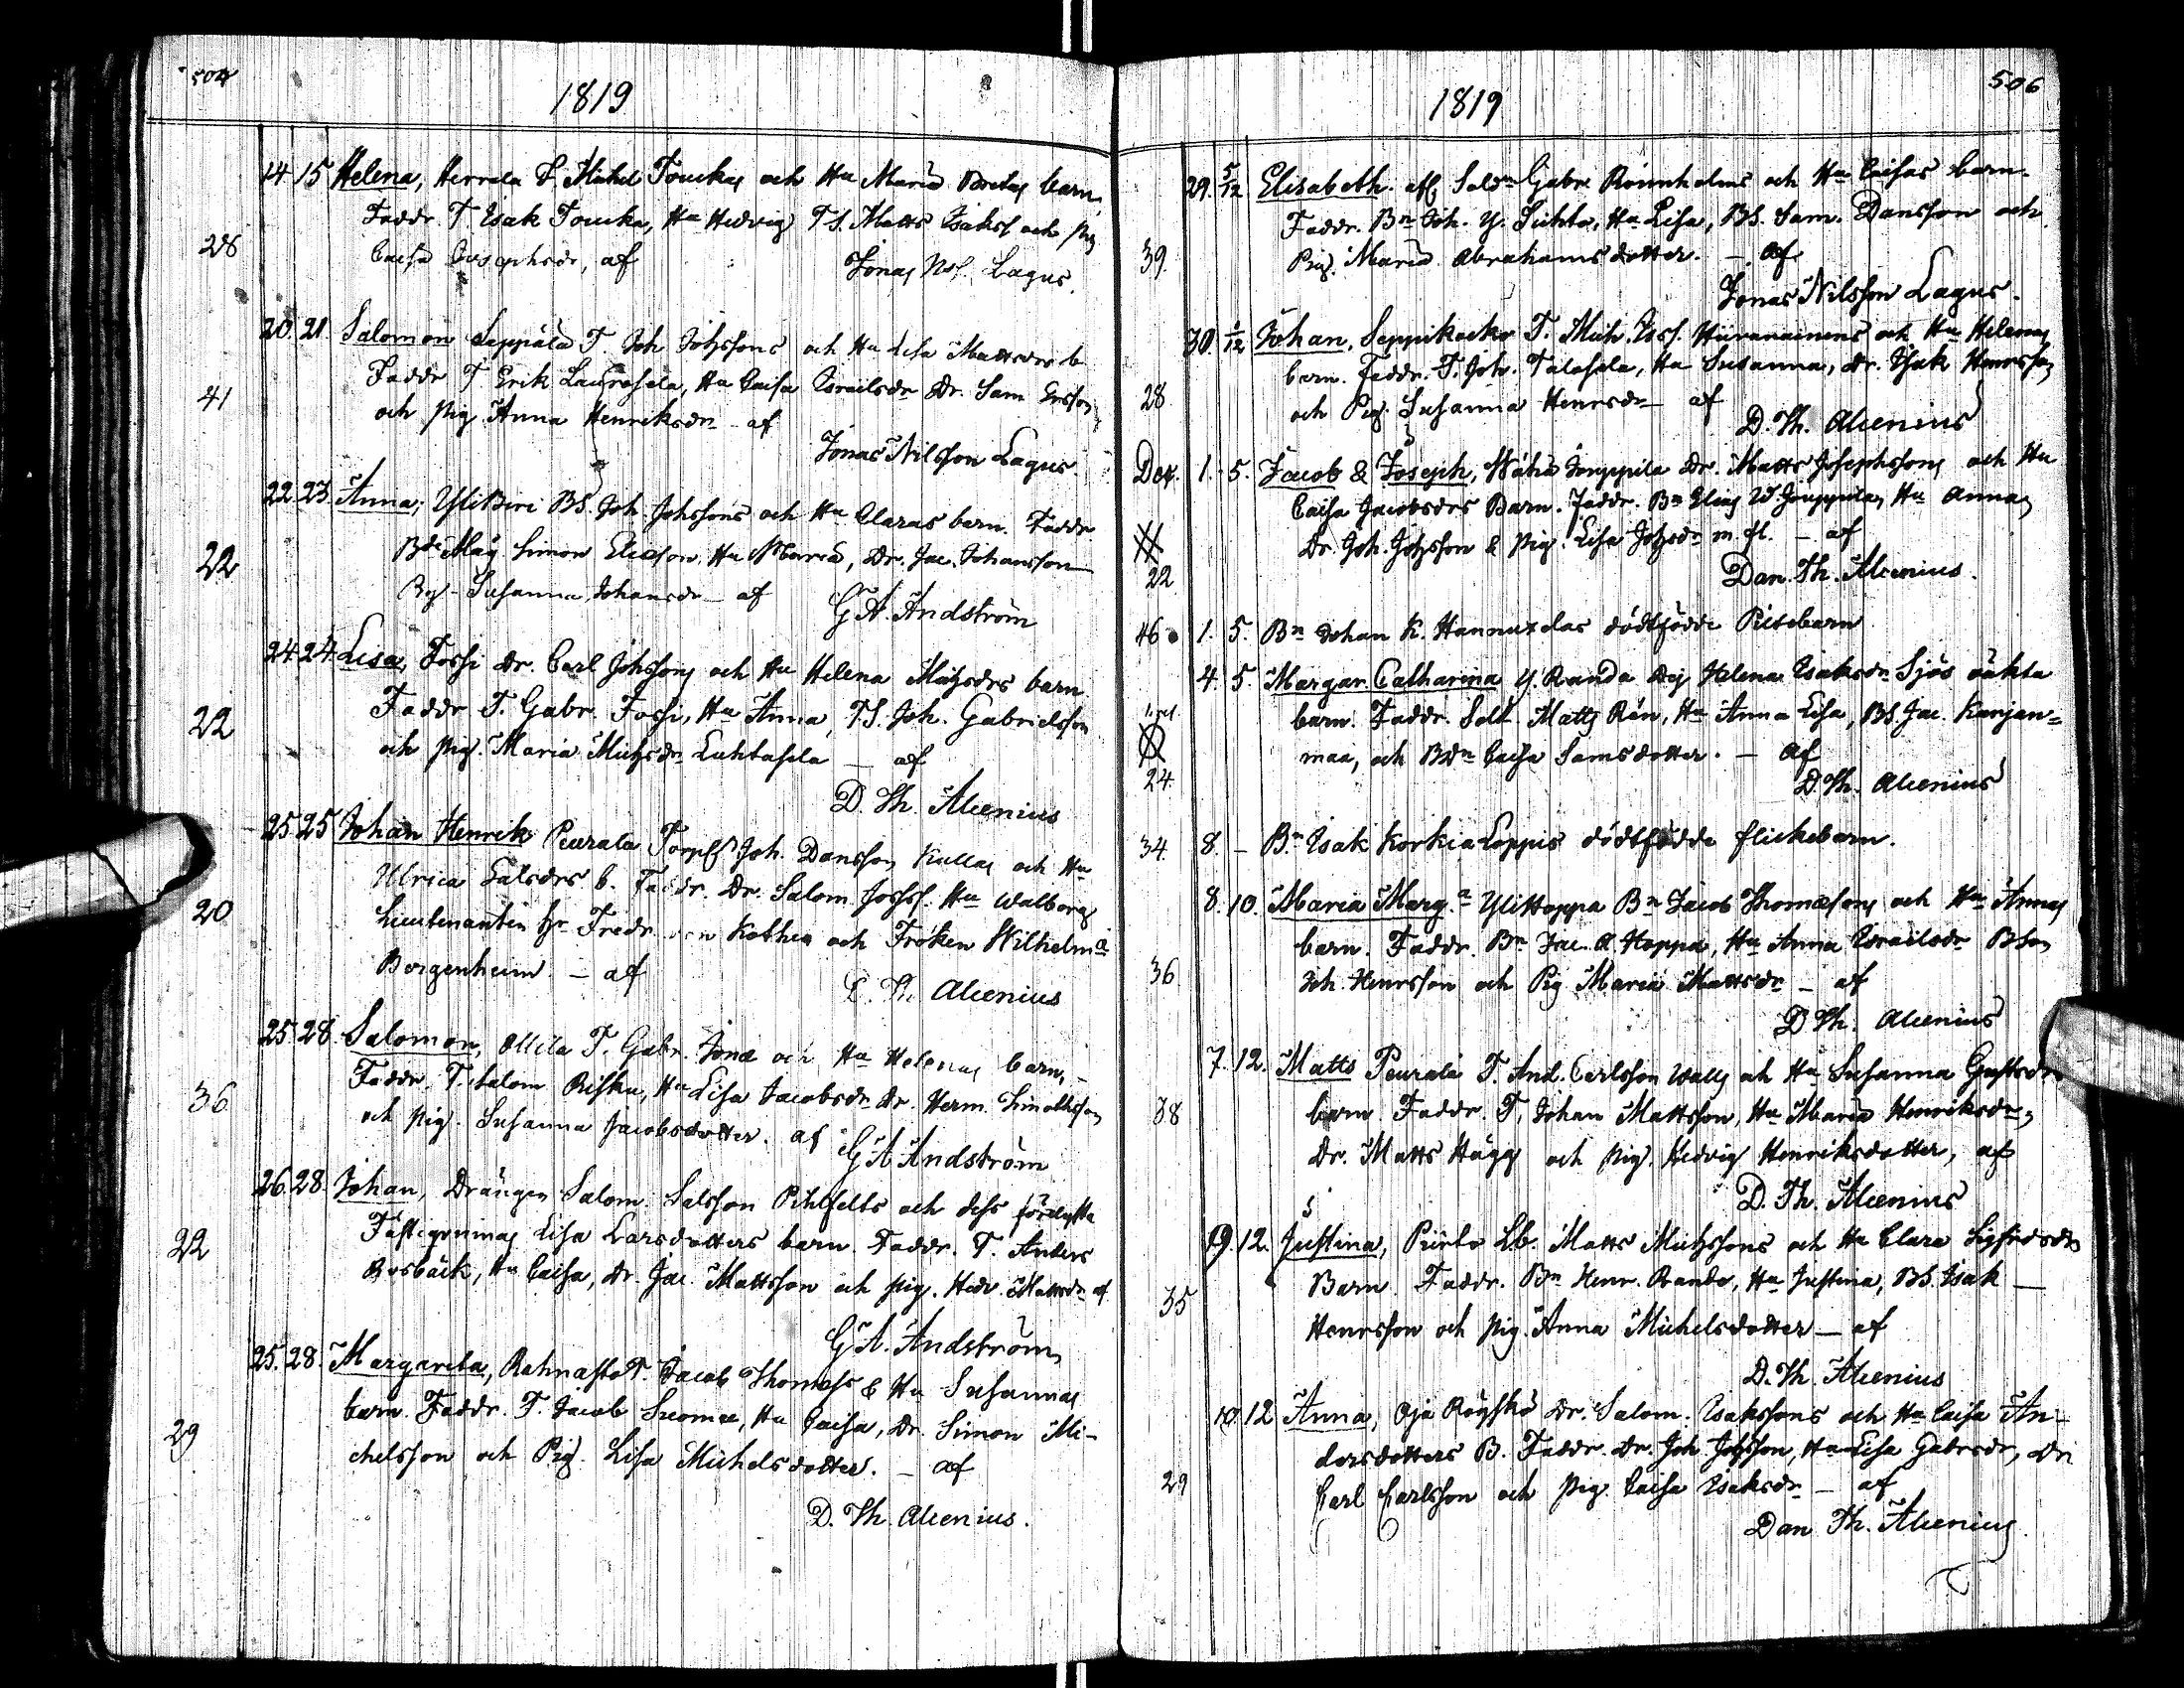 504
1819
14. 15 Helena, Herrala T. Michel Touckas och Hu Maria barn,
Faddr. T. Isak Toucka, Hu Hedvig TS. Matts Isakss och pig
28
Caisa Josephsdr, af Jonas Nilss. Lagus.
20. 21. Salomon Seppälä T. Joh Johssons och Hu Lisa Mattsdrs b
Faddr T Erik Laurosela, Hu Caisa Israelsdr Dr. Sam Ersson
41
och pig Anna Henriksdr af
Jonas Nilsson Lagus
22. 23. Anna, YliBiri BS. Joh. Johssons och Hu Claras barn. Faddr
Mag Simon Eliasson Hu Maria, Dr. Jac. Johansson
22
Pig. Susanna Johansdr - af G A. Andström
24. 24. Lisa, Fossi Dr. Carl Johssons och Hu Helena Michsdrs barn
Faddr T. Gabr. Fossi, Hu Anna, TS. Joh. Gabrielsson
22
och pig. Maria Michsdr Luhtasela - af
D. Th. Alcenius
25. 25 Johan Henrik Peurala Torp Joh. Dansson Kullas och Hu
Ulrica Salsdrs b. Faddr. Dr. Salom Johss. Hu Walborg
20
Lieutenanten Hr Fredr von Kothen och Fröken Wilhelma
Bergenheim. - af
D. Th. Alcenius
25. 28. Salomon, Ollila T. Gabr. Jonæ och Hu Helenas barn, -
Faddr. T. Salom Risku, Hu Lisa Jacobsdr Dr. Herm. Simonsson
36
och pig. Susanna Jacobsdotter. af G A Andström
26. 28. Johan, Drängen Salom. Salsson Pihlfelts och dess förlofta
Fästeqvinnas Lisa Larsdotters barn. Faddr. T. Anders
22
Rosbäck, Hu Caisa, Dr. Jac. Mattsson och pig. Hedv. Mattsdr af
G A. Andström
25. 28. Margareta, Rahnasto T. Jacob Thomæss & Hu Susannas
barn. Faddr. T. Jacob Suomæ, Hu Caisa, Dr. Simon Mi-
29
chelsson och Pig. Lisa Michelsdotter. - af
D. Th. Alcenius.
506
1819
29. 5/12 Elisabeth. afsk Soldn Gabr. Rönnholms och Hu Caisas barn.
Faddr. Bn Joh. Y. Luhta, Hu Lisa, BS. Sam. Dansson och
39.
Pig. Maria Abrahamsdotter. - af
Jonas Nilsson Lagus.
30. 1/12 Johan, Seppikoko T. Mich. Hirvarinens och Hu Helenas
barn. Faddr. T. Joh. Talasela, Hu Susanna, Dr. Isak Henrsson
28
och Pig. Susanna Henrsdr - af
D. Th. Alcenius
Dec. 1. 5. Jacob & Joseph, Wähä Jouppila Dr. Matts Josephssons och Hu
Caisa Jacobsdrs Barn. Faddr. Bn Elias W. Jouppilas Hu Annas
Dr. Joh. Johsson & Pig. Lisa Johsdr m. fl. - af
22
Dan. Th. Alcenius.
46 1. 5. Bn Johan K. Hannuxelas dödfödde Piltebarn
4. 5. Margar. Catharina Y. Randa pig Helena Isaksdr Sjös oäkta
barn. Faddr. Sold. Matts Rön, Hu Anna Lisa, BS. Jac. Karjan-
maa, och Bdr Caisa Samsdotter. - af
24.
D. Th. Alcenius
34. 8. - Bn Isak Korkia Loppis dödfödde flickebarn.
8. 10. Maria Marg.a YliHoppa Bn Jacob Thomæsons och Hu Annas
barn. Faddr. Bn Jac. A. Hoppa, Hu Anna Israelsdr BSon
36.
Joh. Henrsson och Pig Maria Mattsdr - af
D Th. Alcenius
7. 12. Matts Peurala T. And. Carlsson Walls och Hu Susanna Gustsdrs
barn Faddr. T. Johan Mattsson, Hu Maria Henriksdr,
38
Dr. Matts Hägg och pig. Hedvig Henriksdotter, af
D. Th. Alcenius
5
9. 12. Justina, Piirto Lb. Matts Michssons och Hu Clara Sigfridsdrs
Barn. Faddr. Bn Henr. Rando, Hu Justina, BS. Isak -
35
Henrsson och pig. Anna Michelsdotter - af
D. Th. Alcenius
10. 12 Anna, Oja Röyskö Dr. Salom. Isakssons och Hu Caisa An-
dersdotters B. Faddr. Dr. Joh Johsson, Hu Lisa Gabrsdr, Dr
29
Carl Carlsson och Pig Caisa Isaksdr - af
Dan Th. Alcenius.